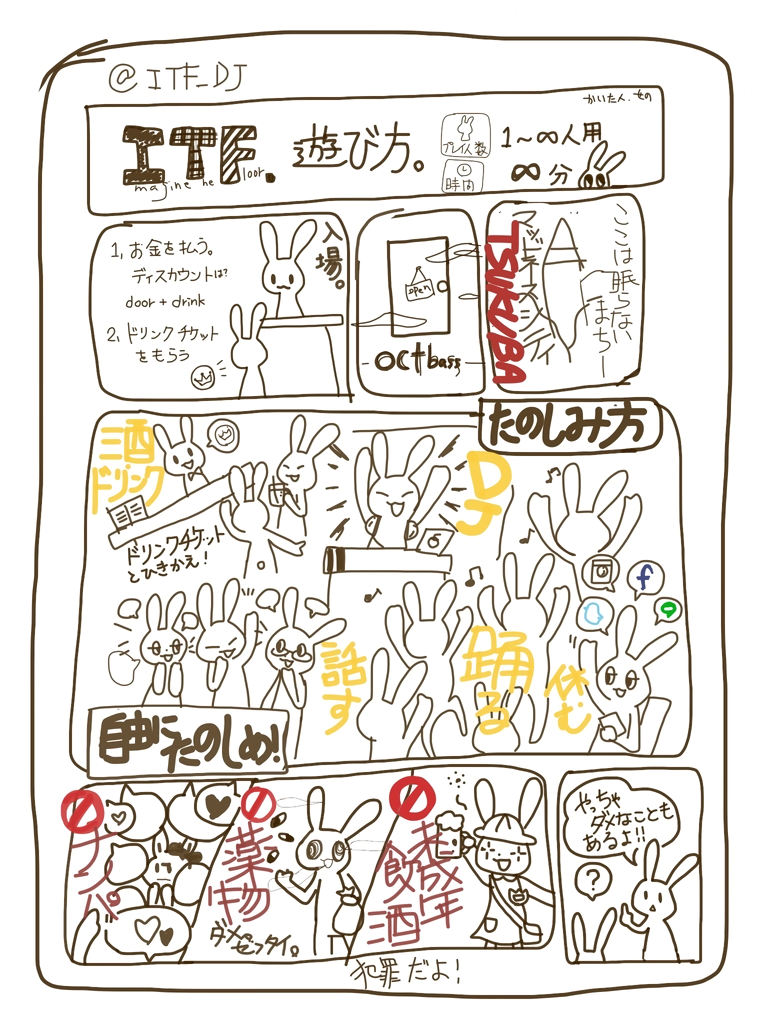 @ITF_DJ
かいた人.その
ITF.
magine he loor
遊び方。
プレイ人数
1〜∞人用
時間
∞分
1, お金を払う。
ディスカウントは?
door + drink
2, ドリンクチケット
をもらう
入場。
open
octbass
TSUKUBA
マッドネスシティ
ここは眠らない
まちー
たのしみ方
酒
ドリンク
ドリンクチケット
とひきかえ!
DJ
話す
踊る
休む
自由にたのしめ!
ナンパ
薬物
ダメゼッタイ。
未成年
飲酒
犯罪だよ!
やっちゃ
ダメなことも
あるよ!!
?